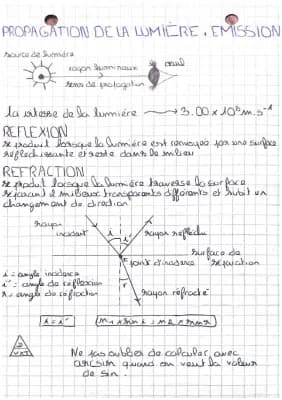 PROPAGATION DE LA LUMIÈRE. EMISSION
source de lumière
rayon lumineux
oeil
sens de propagation
la vitesse de la lumière → 3.00 x 10⁸ m.s⁻¹
REFLEXION
se produit lorsque la lumière est renvoyée par une surface
réfléchissante et reste dans le milieu
REFRACTION
se produit lorsque la lumière traverse la surface
séparant 2 milieux transparents différents et subit un
changement de direction
rayon
incident
i
i'
rayon réfléchi
surface de
séparation
point d'incidence
i = angle incidence
i' = angle de réflexion
r = angle de réfraction
r
rayon réfracté
i = i'
n1 x sin i = n2 x sin r
Ne pas oublier de calculer avec
arcsin quand on veut la valeur
de sin.